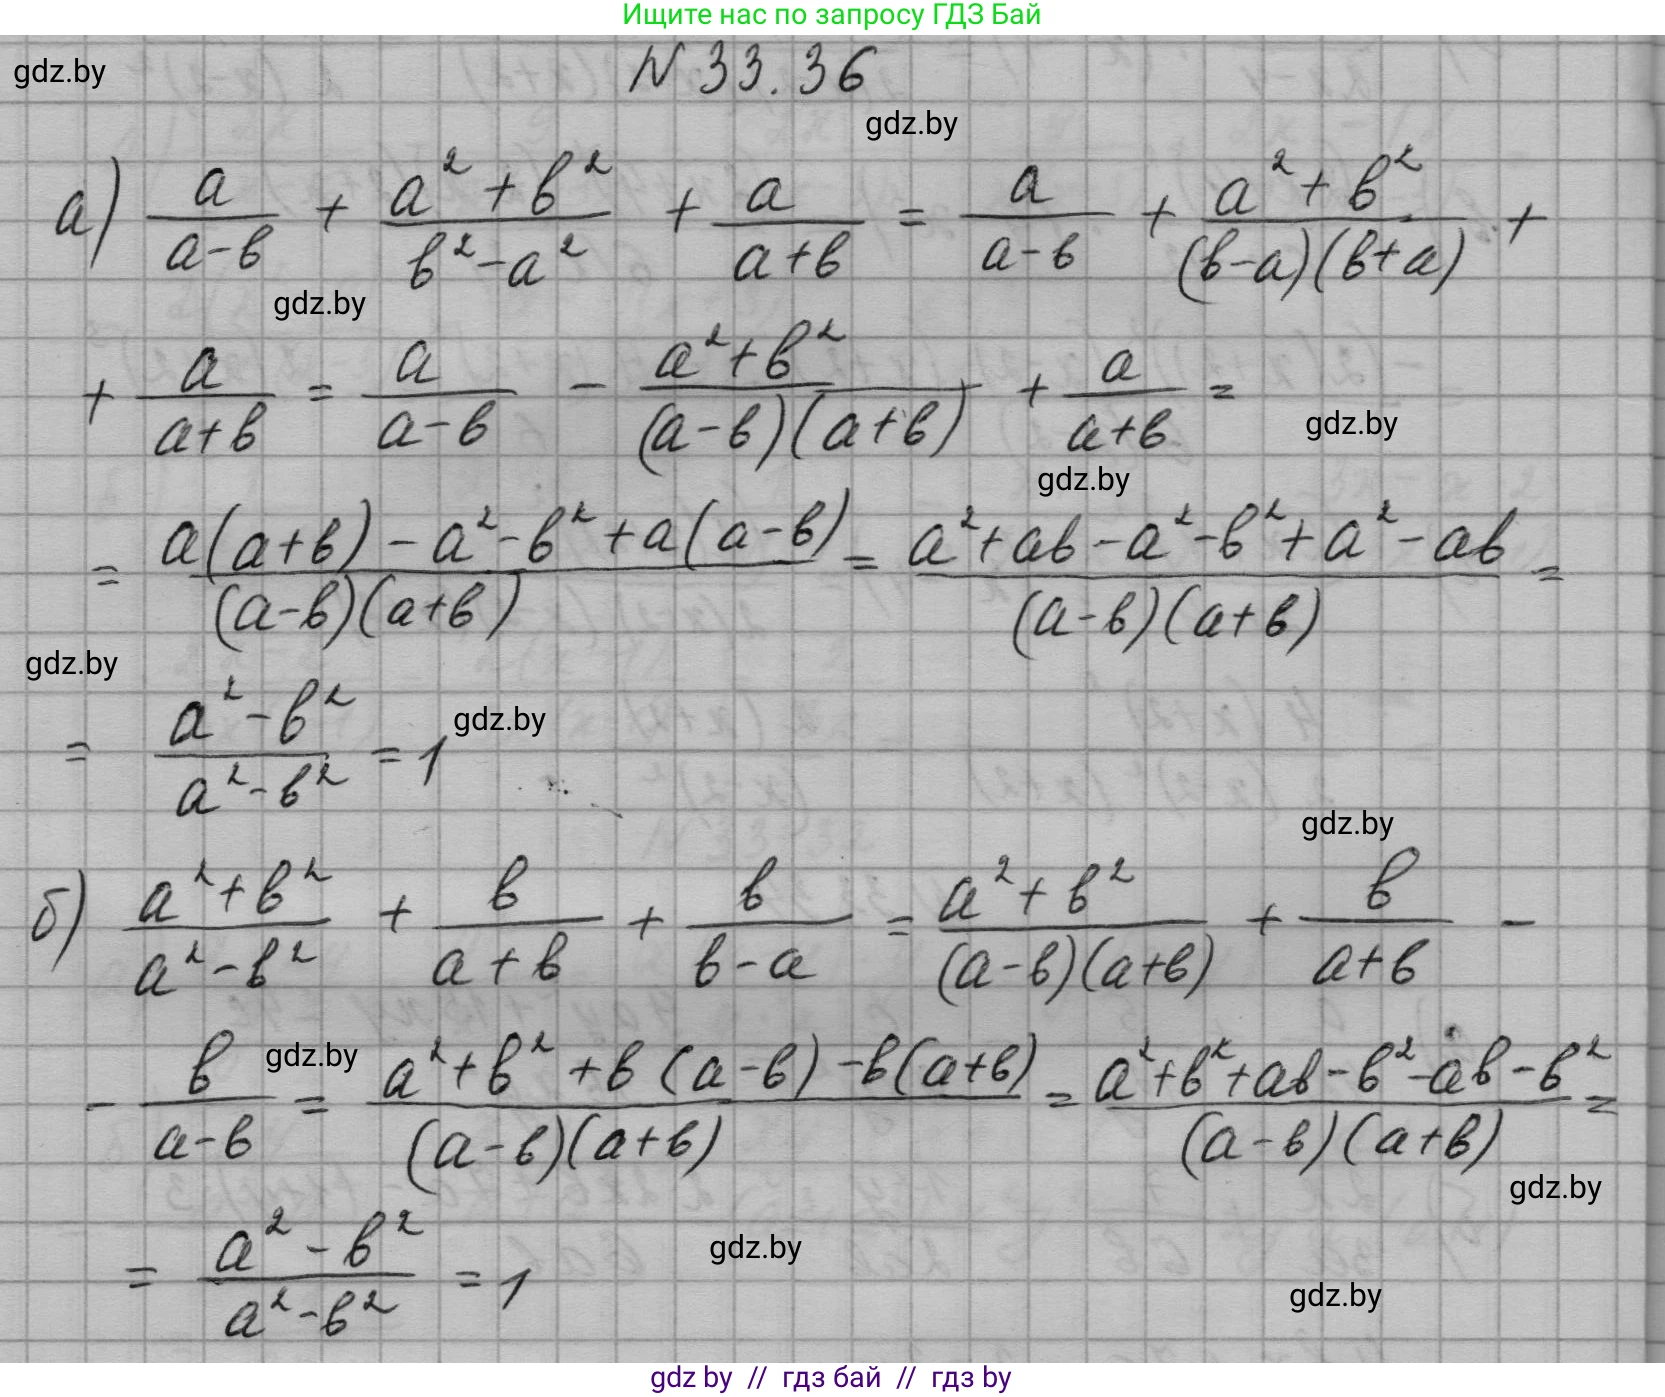 Ищите нас по запросу ГДЗ Бай
gdz.by
N 33.36
gdz.by
а) a/(a-b) + (a²+b²)/(b²-a²) + a/(a+b) = a/(a-b) + (a²+b²)/((b-a)(b+a)) +
gdz.by
+ a/(a+b) = a/(a-b) - (a²+b²)/((a-b)(a+b)) + a/(a+b) =
gdz.by
gdz.by
= (a(a+b)-a²-b²+a(a-b))/((a-b)(a+b)) = (a²+ab-a²-b²+a²-ab)/((a-b)(a+b)) =
gdz.by
= (a²-b²)/(a²-b²) = 1
gdz.by
gdz.by
б) (a²+b²)/(a²-b²) + b/(a+b) + b/(b-a) = (a²+b²)/((a-b)(a+b)) + b/(a+b) -
gdz.by
- b/(a-b) = (a²+b²+b(a-b)-b(a+b))/((a-b)(a+b)) = (a²+b²+ab-b²-ab-b²)/((a-b)(a+b)) =
gdz.by
= (a²-b²)/(a²-b²) = 1
gdz.by
gdz.by
gdz by // гдз бай // гдз by